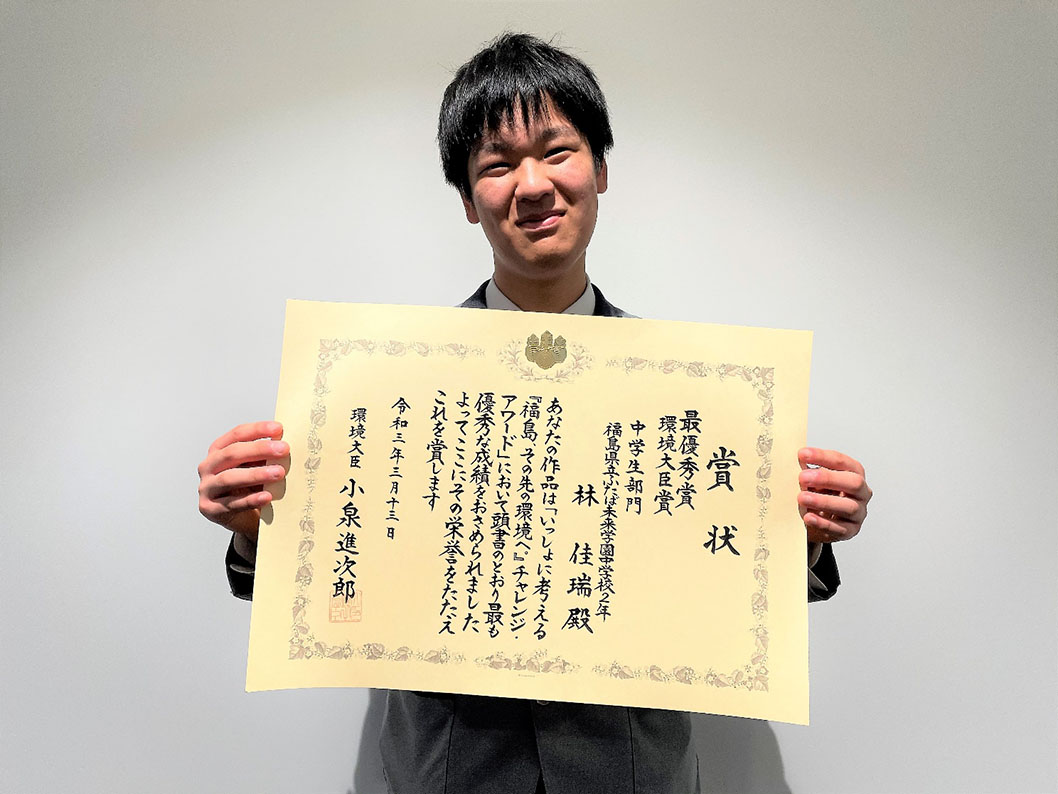 賞状
最優秀賞
環境大臣賞
中学生部門
福島県立ふたば未来学園中学校2年
林 佳瑞殿
あなたの作品は「いっしょに考える
『福島、その先の環境へ。』チャレンジ・
アワード」において頭書のとおり最も
優秀な成績をおさめられました
よってここにその栄誉をたたえ
これを賞します
令和三年三月十三日
環境大臣 小泉進次郎